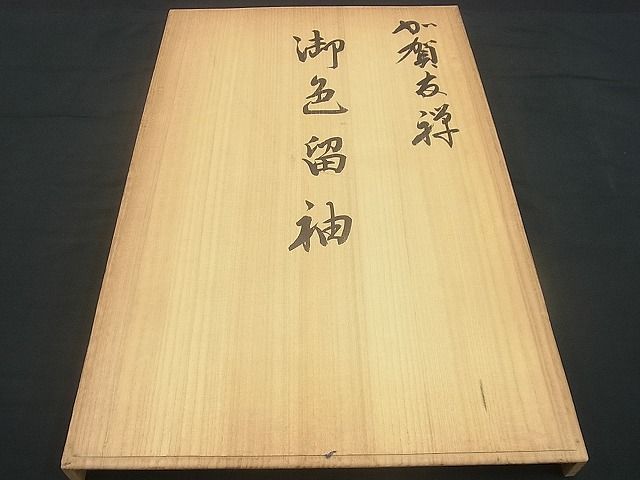 加賀友禅
御色留袖